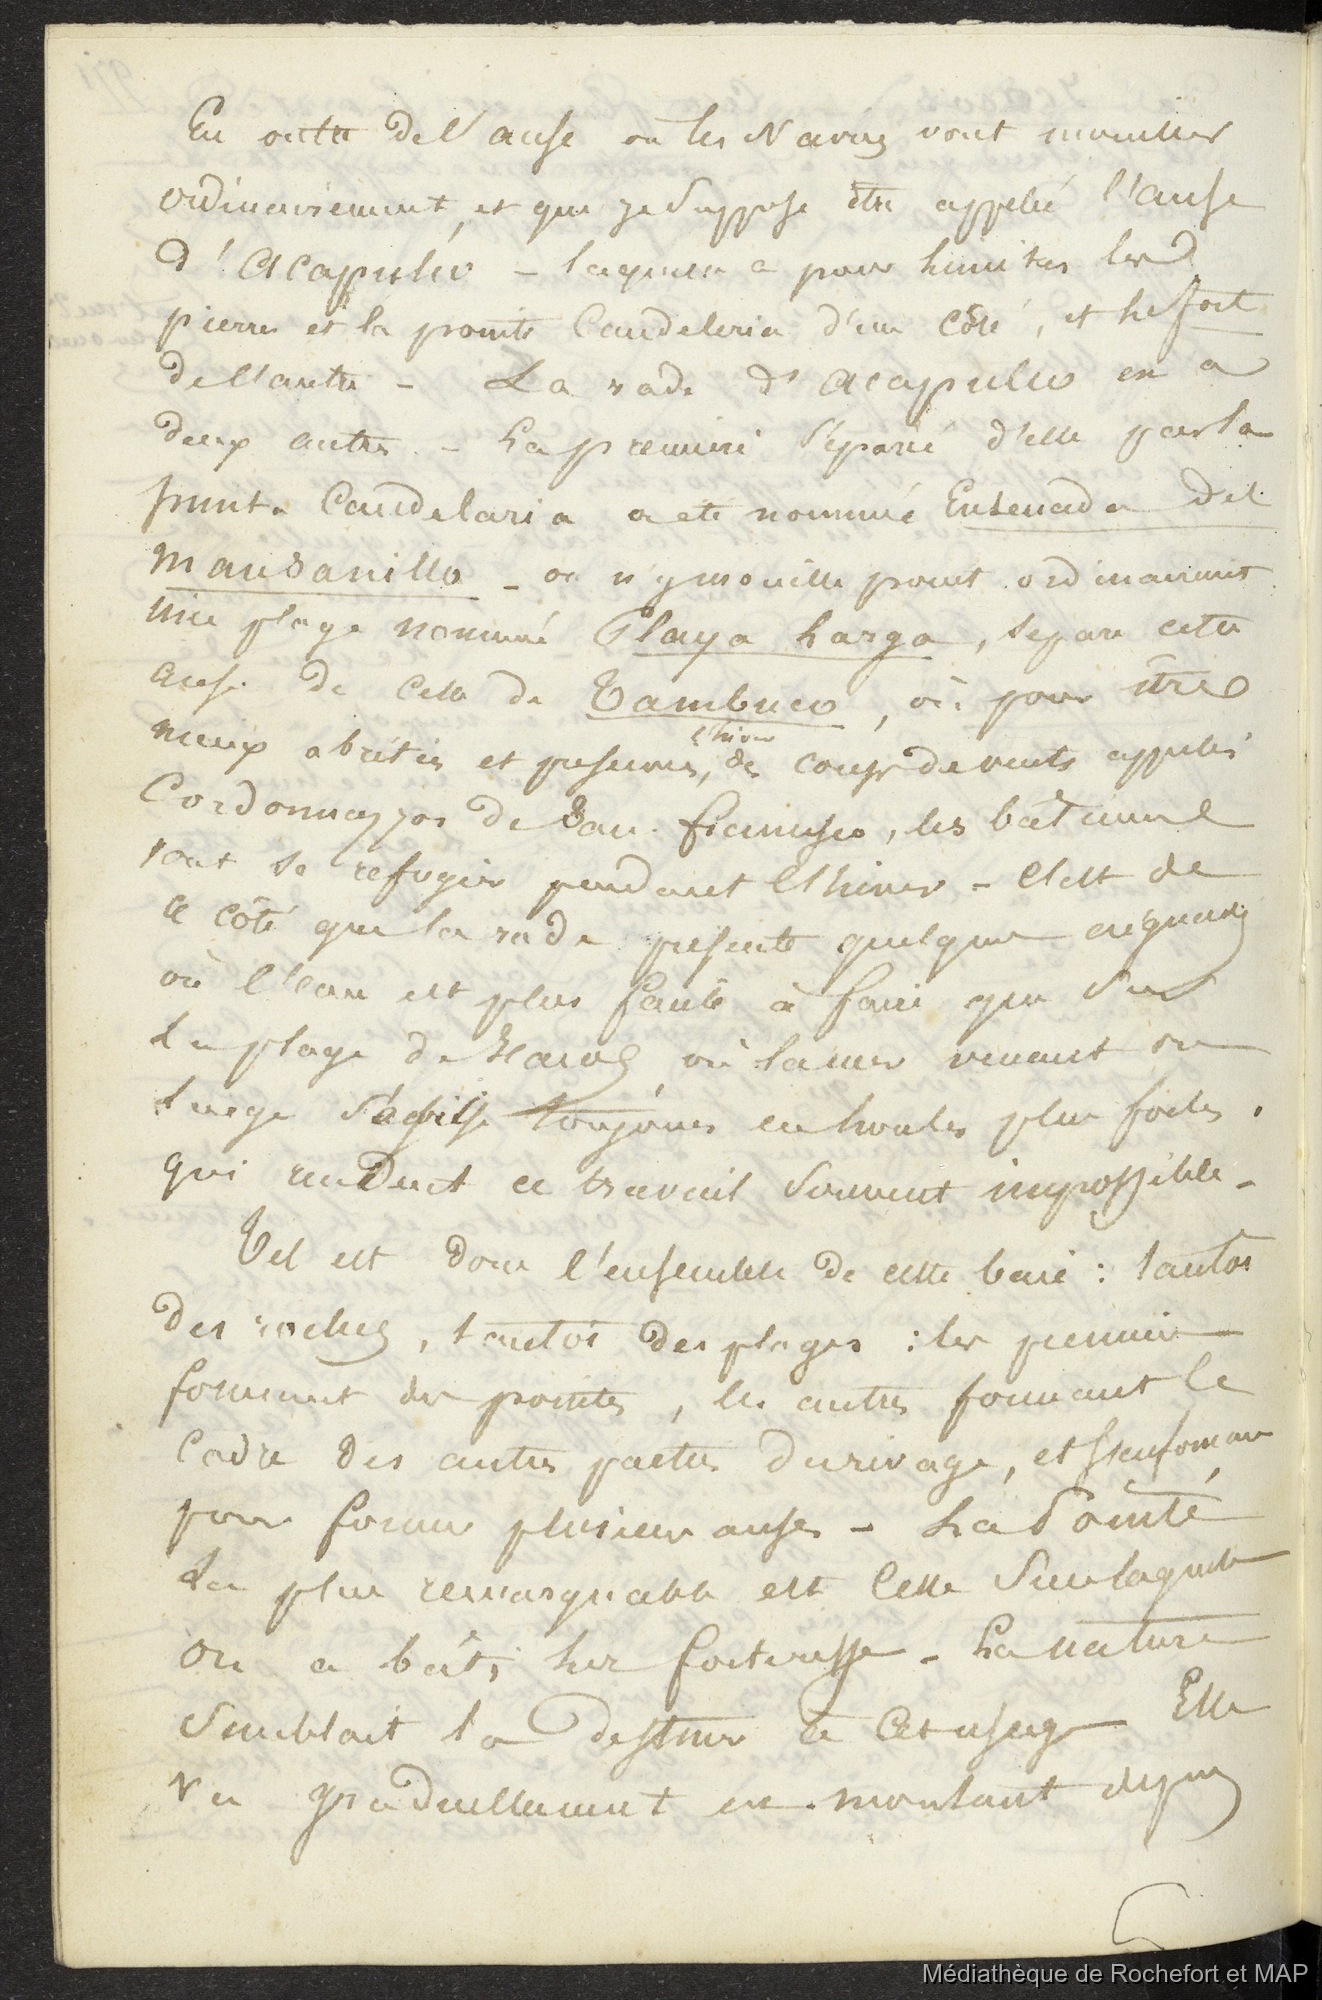 En outre de l'anse où les Navires vont mouiller
ordinairement, et que je suppose être appelé l'anse
d'Acapulco – laquelle a pour limites les
pierres et la pointe Candeleria d'un côté, et le fort
de l'autre – La rade d'Acapulco en a
deux autres – La première séparé d'elle par la
punta Candelaria a été nommé Ensenada del
Manzanillo – on n'y mouille point ordinairement
une plage nommé Playa Larga, separe cette
anse de celle de Tambuco, où pour être
l'hiver
mieux abrités et preserves, des coups de vents appelés
Cordonnazzos de San Francisco, les bâtiments
vont se refugier pendant l'hiver – C'est de
ce côté que la rade presente quelques aiguades
où l'eau est plus facile à faire que sur
la plage de où la mer venant du
large toujours en houles plus fortes,
qui rendent ce travail souvent impossible –
Tel est donc l'ensemble de cette baie : tantot
des roches, tantot des plages : les premiers
formant des pointes, les autres formant le
cadre des autres parties du rivage, et s'enfonçant
pour former plusieurs anses – La Pointe
La plus remarquable est celle sur laquelle
on a bâti la forteresse – La nature
semblait la destiner à cet usage Elle
va graduellement en montant depuis
Médiathèque de Rochefort et MAP